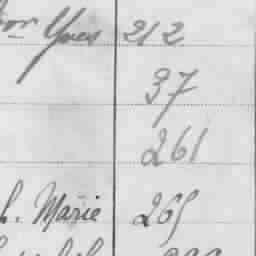 Yves 212
37
261
h. Marie 265